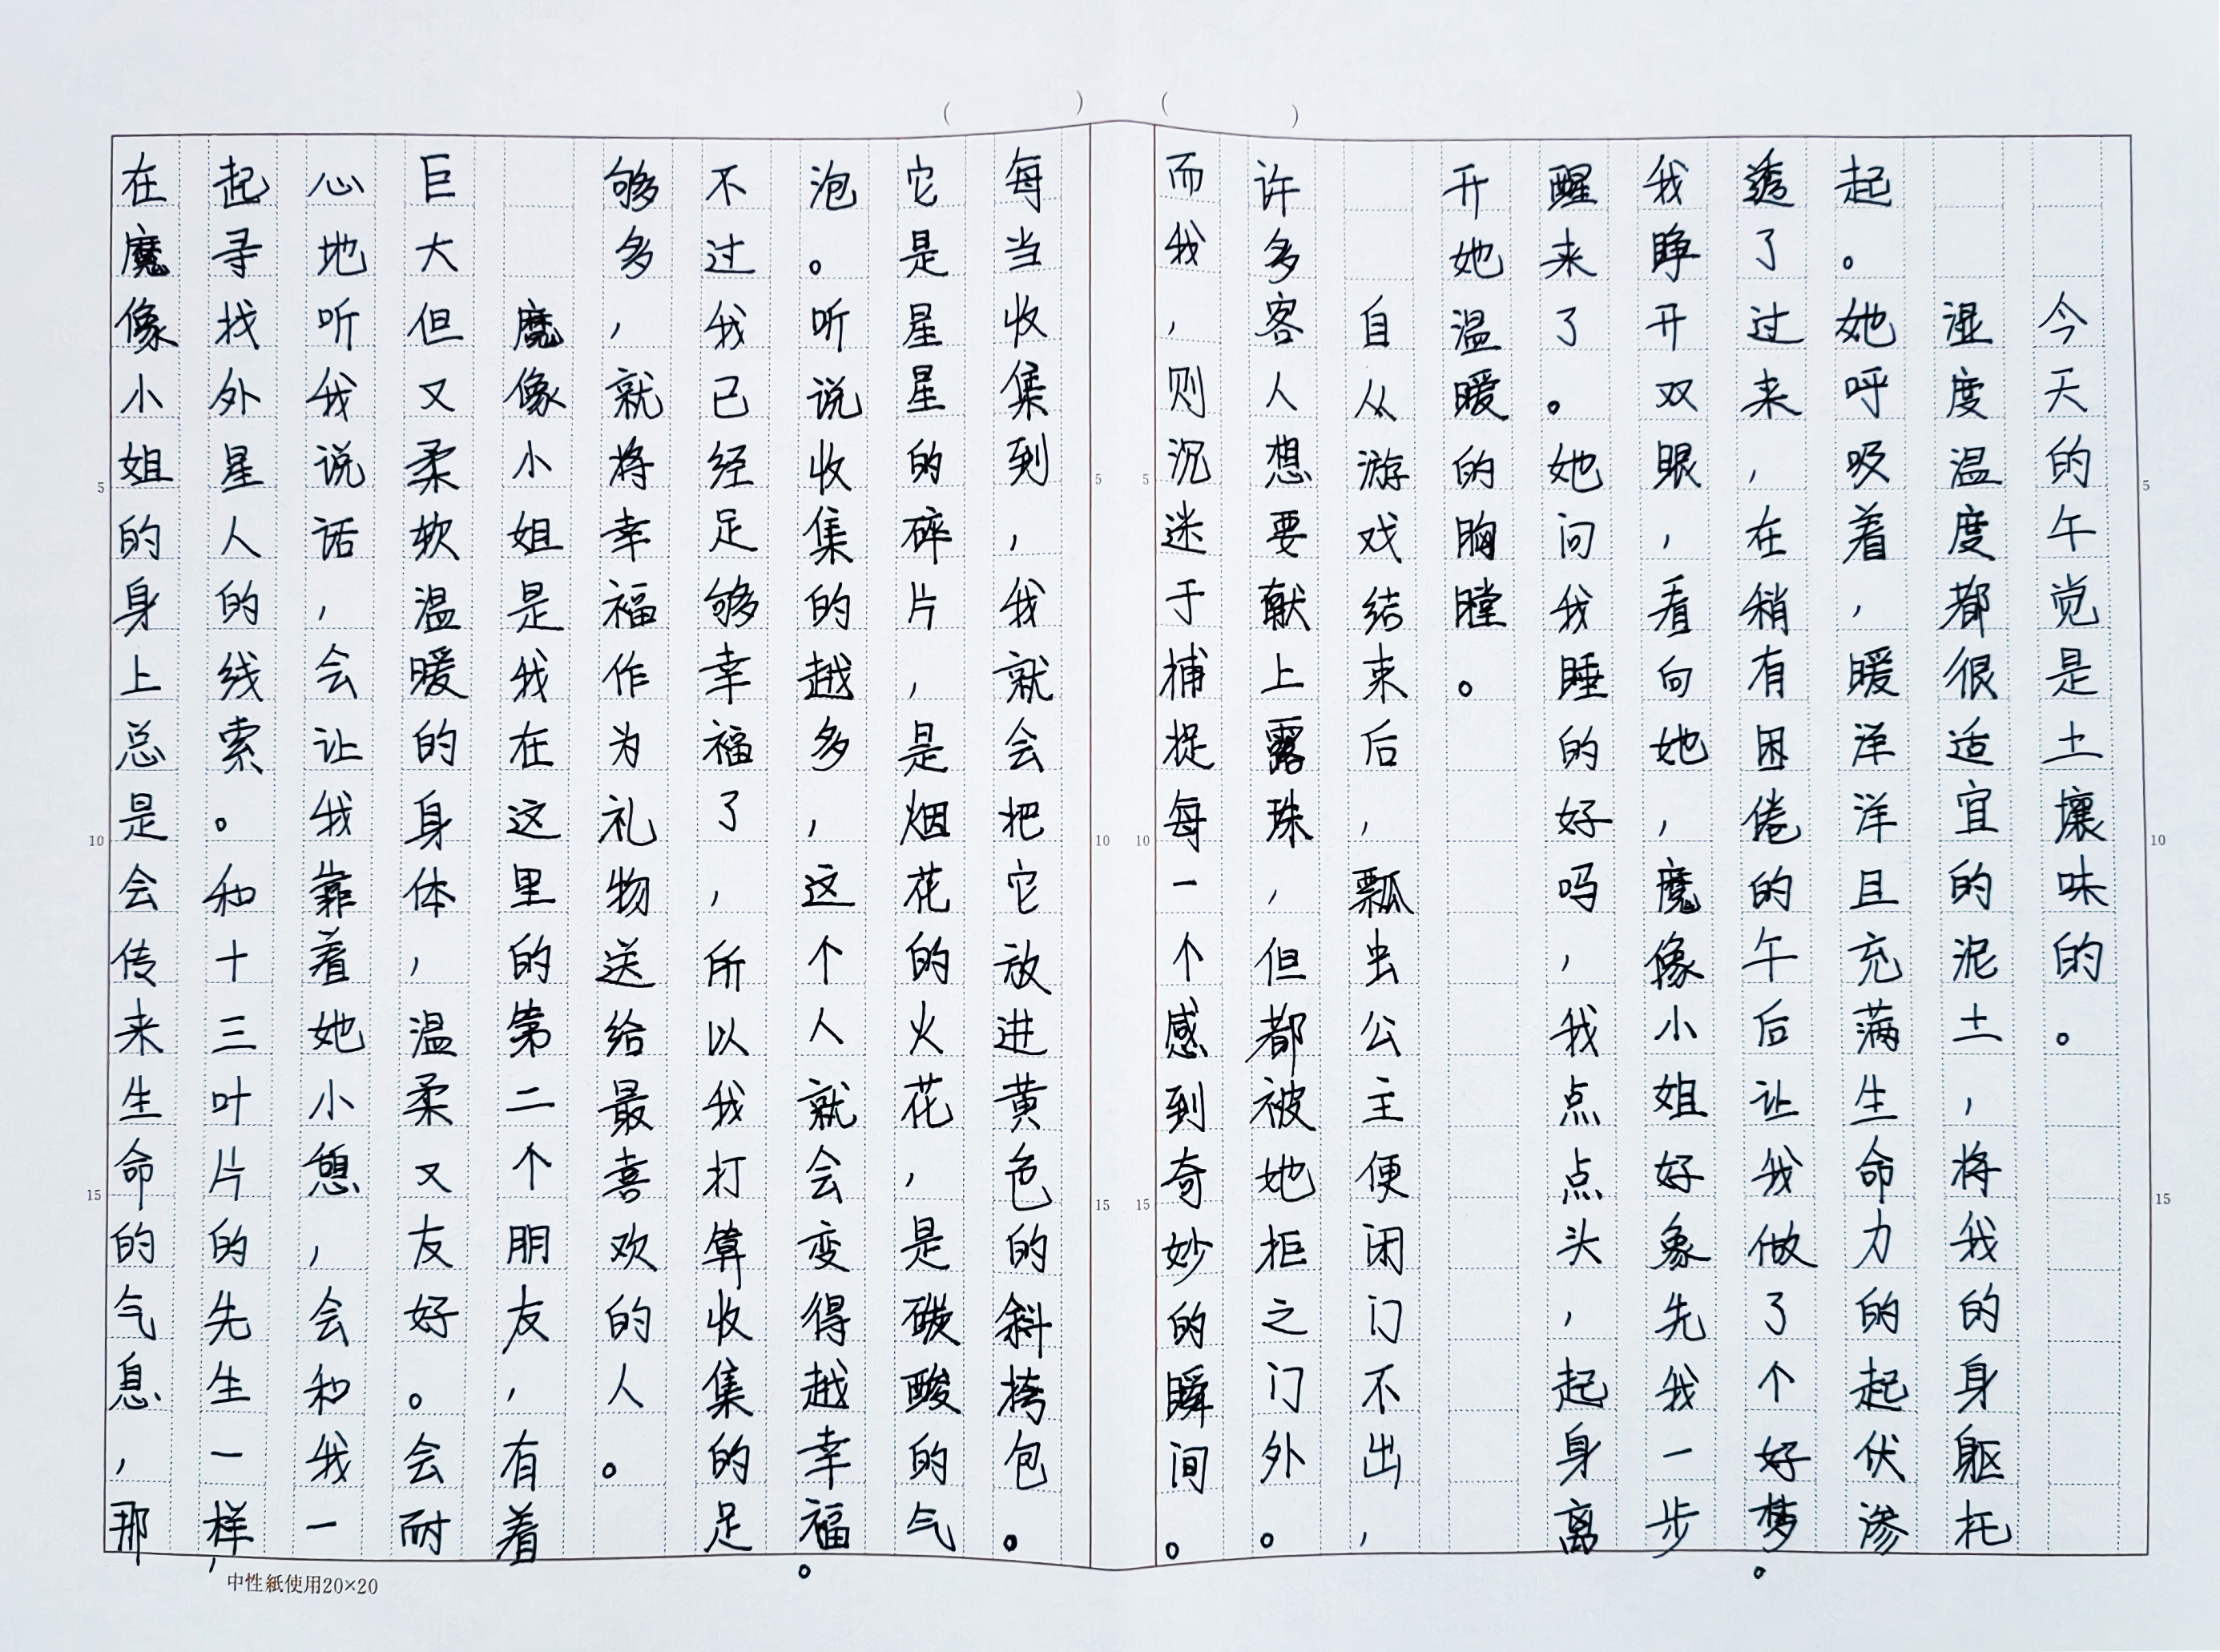 今天的午觉是土壤味的。
湿度温度都很适宜的泥土，将我的身躯托
起。她呼吸着，暖洋洋且充满生命力的起伏渗
透了过来，在稍有困倦的午后让我做了个好梦。
我睁开双眼，看向她，魔像小姐好象先我一步
醒来了。她问我睡的好吗，我点点头，起身离
开她温暖的胸膛。
自从游戏结束后，瓢虫公主便闭门不出，
许多客人想要献上露珠，但都被她拒之门外。
而我，则沉迷于捕捉每一个感到奇妙的瞬间。
每当收集到，我就会把它放进黄色的斜挎包。
它是星星的碎片，是烟花的火花，是碳酸的气
泡。听说收集的越多，这个人就会变得越幸福。
不过我已经足够幸福了，所以我打算收集的足
够多，就将幸福作为礼物送给最喜欢的人。
魔像小姐是我在这里的第二个朋友，有着
巨大但又柔软温暖的身体，温柔又友好。会耐
心地听我说话，会让我靠着她小憩，会和我一
起寻找外星人的线索。和十三叶片的先生一样，
在魔像小姐的身上总是会传来生命的气息，那
5
10
15
5
10
15
5
10
15
5
10
15
( )
( )
中性紙使用20×20